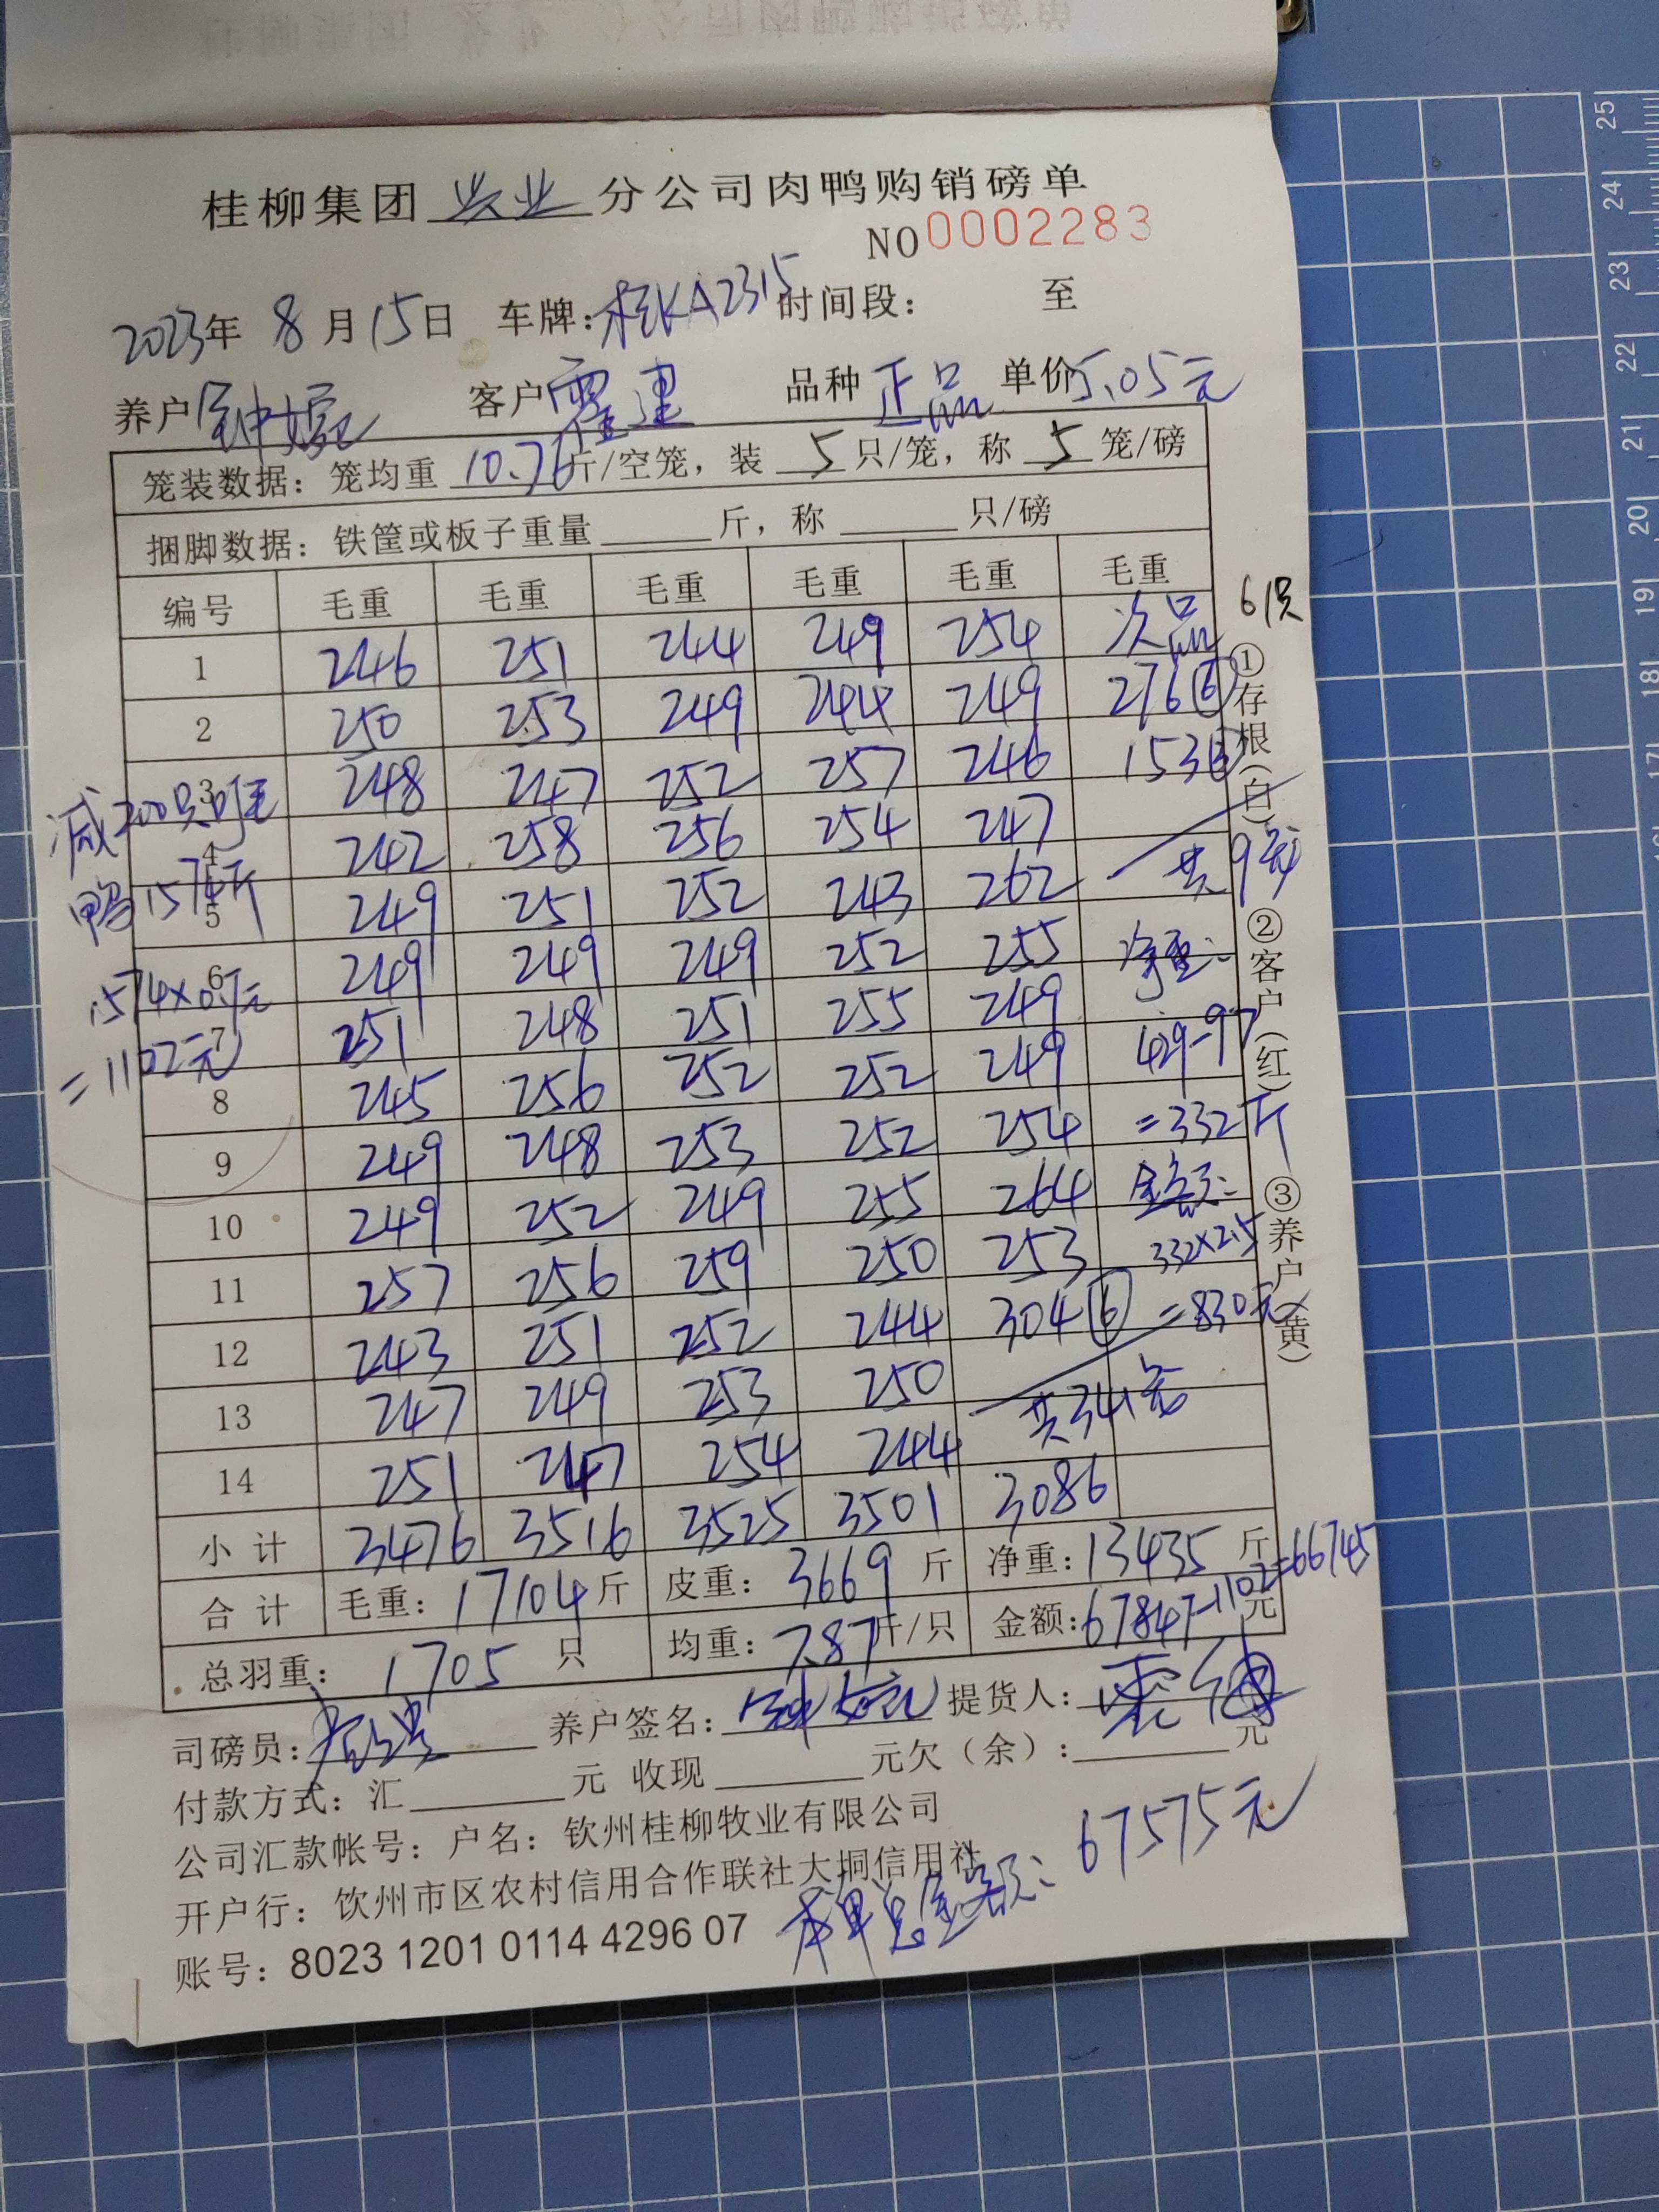 桂柳集团 兴业 分公司肉鸭购销磅单
NO 0002283
2023年 8月15日 车牌：桂KA2315 时间段： 至
养户 钟婉 客户 品种 正品 单价5.05元
笼装数据：笼均重 10.76斤/空笼，装 5 只/笼，称 5 笼/磅
捆脚数据：铁筐或板子重量 斤，称 只/磅
编号 毛重 毛重 毛重 毛重 毛重 毛重 61只
1 246 251 244 249 254 次品
2 250 253 249 244 249 276⑥
3 248 247 252 257 246 153③
4 242 258 256 254 247
5 249 251 252 243 262 共9笼
6 249 249 249 252 255 净重：
7 251 248 251 255 249 429-97
8 245 256 252 252 249
9 249 248 253 252 254 =332斤
10 249 252 249 255 264 金额：
11 257 256 259 250 253 332×2.5
12 243 251 252 244 304⑥ =830元
13 247 249 253 250 共341笼
14 251 247 254 244
小计 3476 3516 3525 3501 3086
合计 毛重：17104斤 皮重：3669斤 净重：13435斤
总羽重：1705只 均重：7.87斤/只 金额：67847-1102=66745元
减200只
鸭1574斤
1574×0.7元
=1102元
①存根（白） ②客户（红） ③养户（黄）
司磅员： 养户签名：钟婉 提货人：
付款方式：汇 元 收现 元欠（余）： 元
公司汇款帐号：户名：钦州桂柳牧业有限公司
开户行：钦州市区农村信用合作联社大垌信用社
账号：8023 1201 0114 4296 07
本单总金额：67575元
25
24
23
22
21
20
19
18
17
16